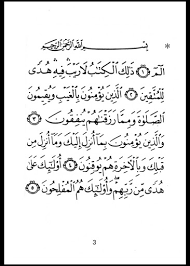 * بِسْمِ اللَّهِ الرَّحْمَٰنِ الرَّحِيمِ *
الٓمٓ ١ ذَٰلِكَ الْكِتَٰبُ لَا رَيْبَ فِيهِ هُدًى
لِّلْمُتَّقِينَ ٢ الَّذِينَ يُؤْمِنُونَ بِالْغَيْبِ وَيُقِيمُونَ
الصَّلَوٰةَ وَمِمَّا رَزَقْنَٰهُمْ يُنفِقُونَ ٣
وَالَّذِينَ يُؤْمِنُونَ بِمَا أُنزِلَ إِلَيْكَ وَمَا أُنزِلَ مِن
قَبْلِكَ وَبِالْآخِرَةِ هُمْ يُوقِنُونَ ٤ أُولَٰئِكَ عَلَىٰ
هُدًى مِّن رَّبِّهِمْ وَأُولَٰئِكَ هُمُ الْمُفْلِحُونَ ٥
3